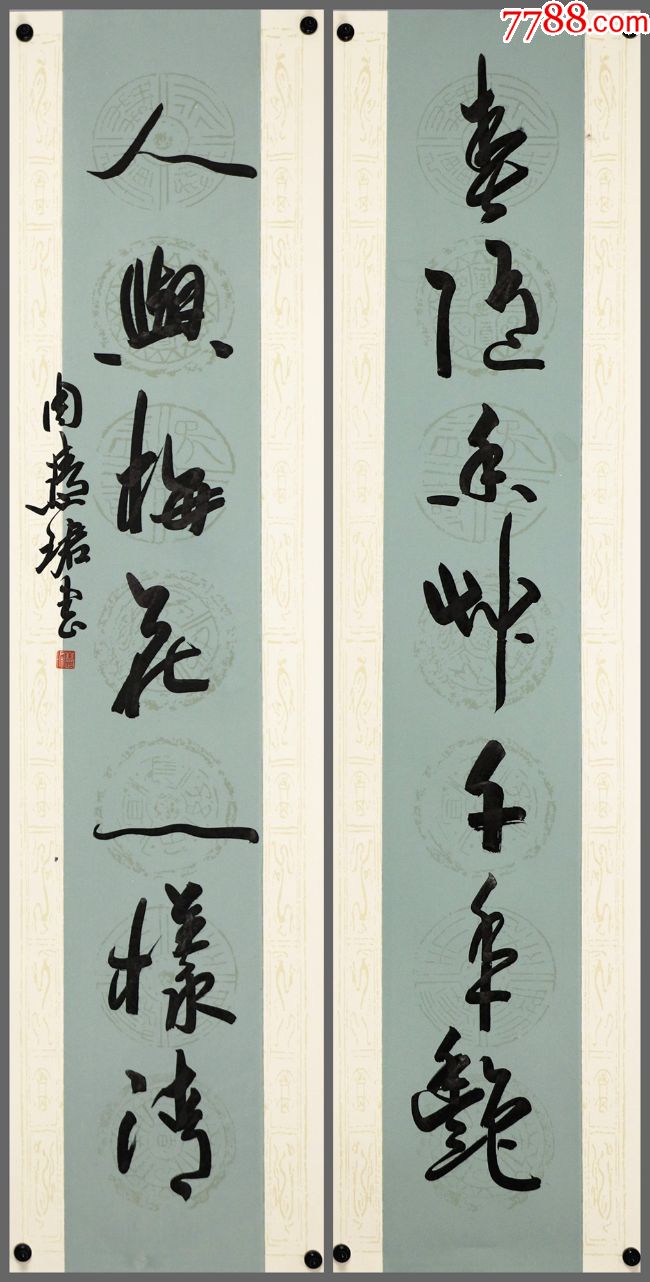 7788.com
春随香艸千年艷
人與梅花一樣清
周慧珺书